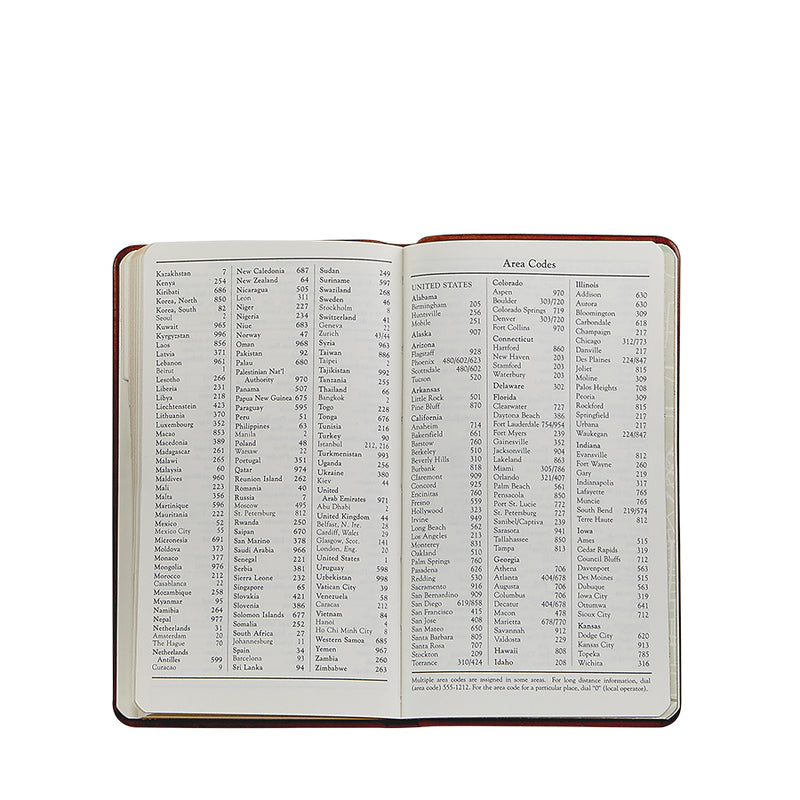 Kazakhstan 7
Kenya 254
Kiribati 686
Korea, North 850
Korea, South 82
Seoul 2
Kuwait 965
Kyrgyzstan 996
Laos 856
Latvia 371
Lebanon 961
Beirut
Lesotho 266
Liberia 231
Libya 218
Liechtenstein 423
Lithuania 370
Luxembourg 352
Macao 853
Macedonia 389
Madagascar 261
Malawi 265
Malaysia 60
Maldives 960
Mali 223
Malta 356
Martinique 596
Mauritania 222
Mexico 52
Mexico City 55
Micronesia 691
Moldova 373
Monaco 377
Mongolia 976
Morocco 212
Casablanca 22
Mozambique 258
Myanmar 95
Namibia 264
Nepal 977
Netherlands 31
Amsterdam 20
The Hague 70
Netherlands
Antilles 599
Curacao 9
New Caledonia 687
New Zealand 64
Nicaragua 505
Leon 311
Niger 227
Nigeria 234
Niue 683
Norway 47
Oman 968
Pakistan 92
Palau 680
Palestinian Nat'l
Authority 970
Panama 507
Papua New Guinea 675
Paraguay 595
Peru 51
Philippines 63
Manila 2
Poland 48
Warsaw 22
Portugal 351
Qatar 974
Reunion Island 262
Romania 40
Russia 7
Moscow 495
St. Petersburg 812
Rwanda 250
Saipan 670
San Marino 378
Saudi Arabia 966
Senegal 221
Serbia 381
Sierra Leone 232
Singapore 65
Slovakia 421
Slovenia 386
Solomon Islands 677
Somalia 252
South Africa 27
Johannesburg 11
Spain 34
Barcelona 93
Sri Lanka 94
Sudan 249
Suriname 597
Swaziland 268
Sweden 46
Stockholm 8
Switzerland 41
Geneva 22
Zurich 43/44
Syria 963
Taiwan 886
Taipei 2
Tajikistan 992
Tanzania 255
Thailand 66
Bangkok 2
Togo 228
Tonga 676
Tunisia 216
Turkey 90
Istanbul 212, 216
Turkmenistan 993
Uganda 256
Ukraine 380
Kiev 44
United
Arab Emirates 971
Abu Dhabi 2
United Kingdom 44
Belfast, N. Ire. 28
Cardiff, Wales 29
Glasgow, Scot. 141
London, Eng. 20
United States 1
Uruguay 598
Uzbekistan 998
Vatican City 39
Venezuela 58
Caracas 212
Vietnam 84
Hanoi 4
Ho Chi Minh City 8
Western Samoa 685
Yemen 967
Zambia 260
Zimbabwe 263
Area Codes
UNITED STATES
Alabama
Birmingham 205
Huntsville 256
Mobile 251
Alaska 907
Arizona
Flagstaff 928
Phoenix 480/602/623
Scottsdale 480/602
Tucson 520
Arkansas
Little Rock 501
Pine Bluff 870
California
Anaheim 714
Bakersfield 661
Barstow 760
Berkeley 510
Beverly Hills 310
Burbank 818
Claremont 909
Concord 925
Encinitas 760
Fresno 559
Hollywood 323
Irvine 949
Long Beach 562
Los Angeles 213
Monterey 831
Oakland 510
Palm Springs 760
Pasadena 626
Redding 530
Sacramento 916
San Bernardino 909
San Diego 619/858
San Francisco 415
San Jose 408
San Mateo 650
Santa Barbara 805
Santa Rosa 707
Stockton 209
Torrance 310/424
Colorado
Aspen 970
Boulder 303/720
Colorado Springs 719
Denver 303/720
Fort Collins 970
Connecticut
Hartford 860
New Haven 203
Stamford 203
Waterbury 203
Delaware 302
Florida
Clearwater 727
Daytona Beach 386
Fort Lauderdale 754/954
Fort Myers 239
Gainesville 352
Jacksonville 904
Lakeland 863
Miami 305/786
Orlando 321/407
Palm Beach 561
Pensacola 850
Port St. Lucie 772
St. Petersburg 727
Sanibel/Captiva 239
Sarasota 941
Tallahassee 850
Tampa 813
Georgia
Athens 706
Atlanta 404/678
Augusta 706
Columbus 706
Decatur 404/678
Macon 478
Marietta 678/770
Savannah 912
Valdosta 229
Hawaii 808
Idaho 208
Illinois
Addison 630
Aurora 630
Bloomington 309
Carbondale 618
Champaign 217
Chicago 312/773
Danville 217
Des Plaines 224/847
Joliet 815
Moline 309
Palos Heights 708
Peoria 309
Rockford 815
Springfield 217
Urbana 217
Waukegan 224/847
Indiana
Evansville 812
Fort Wayne 260
Gary 219
Indianapolis 317
Lafayette 765
Muncie 765
South Bend 219/574
Terre Haute 812
Iowa
Ames 515
Cedar Rapids 319
Council Bluffs 712
Davenport 563
Des Moines 515
Dubuque 563
Iowa City 319
Ottumwa 641
Sioux City 712
Kansas
Dodge City 620
Kansas City 913
Topeka 785
Wichita 316
Multiple area codes are assigned in some areas. For long distance information, dial
(area code) 555-1212. For the area code for a particular place, dial "0" (local operator).